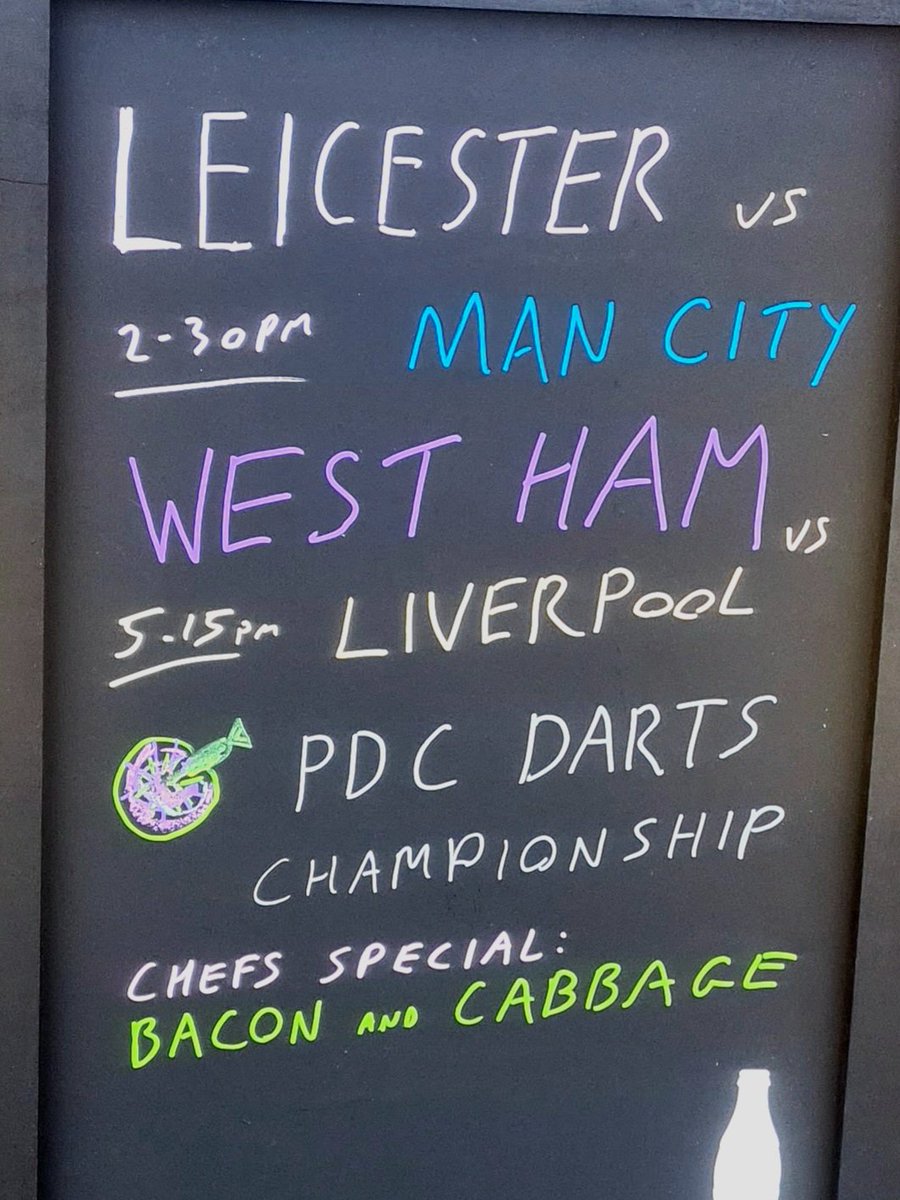 LEICESTER vs
2-30PM MAN CITY
WEST HAM vs
5-15pm LIVERPooL
PDC DARTS
CHAMPIONSHIP
CHEFS SPECIAL:
BACON AND CABBAGE